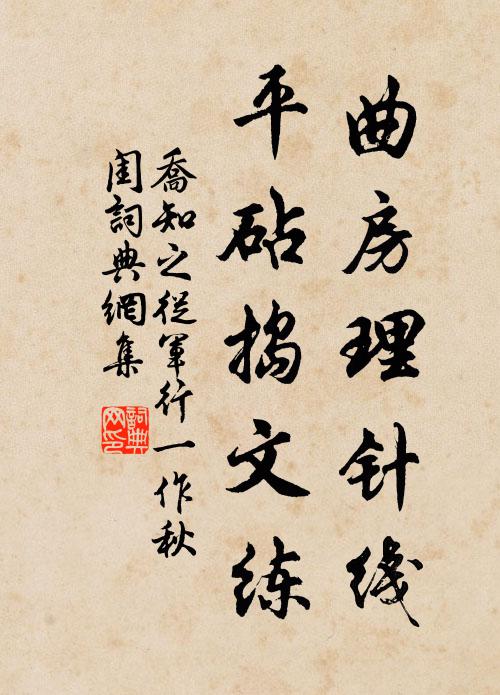 曲房理针线
平砧捣文练
喬知之從軍行一作秋
閨詞典網集
詞典网印